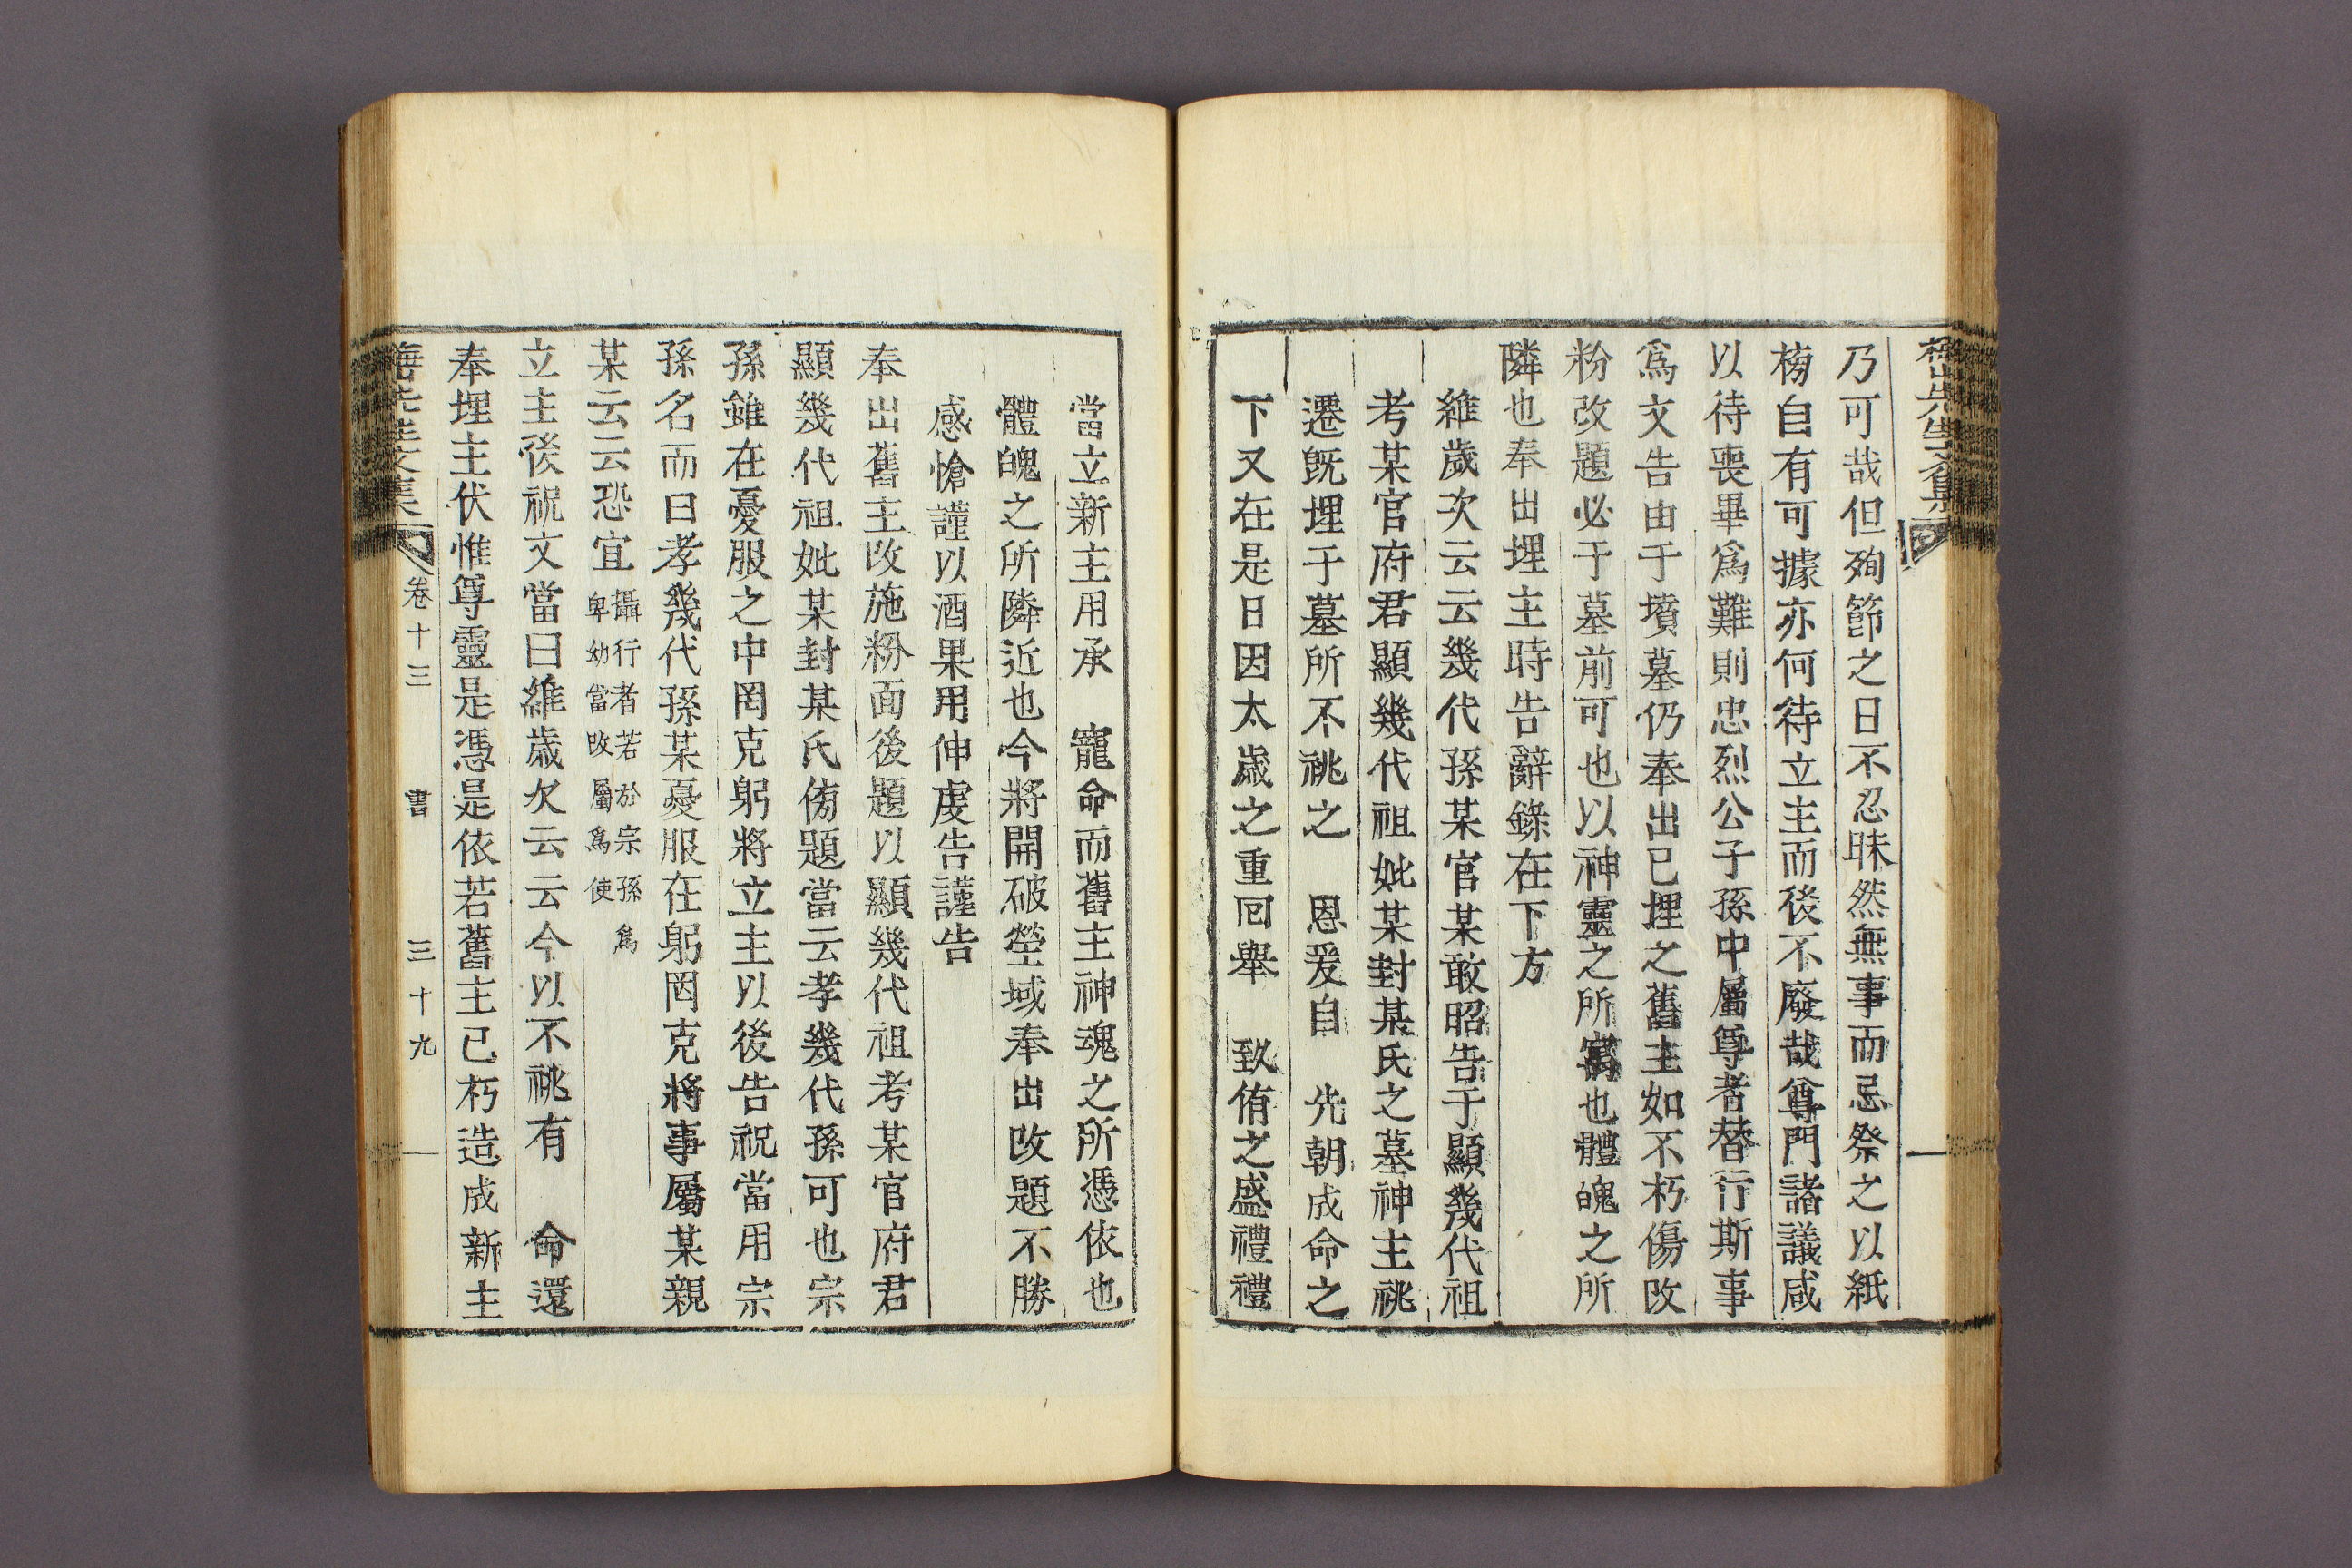 乃可哉但殉節之日不忍昧然無事而忌祭之以紙
榜自有可據亦何待立主而後不廢哉尊門諸議咸
以待喪畢爲難則忠烈公子孫中屬尊者替行斯事
爲文告由于墳墓仍奉出已埋之舊主如不朽傷改
粉改題必于墓前可也以神靈之所寓也體魄之所
隣也奉出埋主時告辭錄在下方
維歲次云云幾代孫某官某敢昭告于顯幾代祖
考某官府君顯幾代祖妣某封某氏之墓神主祧
遷旣埋于墓所不祧之　恩爰自　先朝成命之
下又在是日因太歲之重回舉　致侑之盛禮禮
當立新主用承　寵命而舊主神魂之所憑依也
體魄之所隣近也今將開破塋域奉出改題不勝
感愴謹以酒果用伸虔告謹告
奉出舊主改施粉面後題以顯幾代祖考某官府君
顯幾代祖妣某封某氏傍題當云孝幾代孫可也宗
孫雖在憂服之中罔克躬將立主以後告祝當用宗
孫名而曰孝幾代孫某憂服在躬罔克將事屬某親
某云云恐宜攝行者若於宗孫爲卑幼當改屬爲使
立主後祝文當曰維歲次云云今以不祧有　命還
奉埋主伏惟尊靈是憑是依若舊主已朽造成新主
先生文集　卷十三　書　三十九